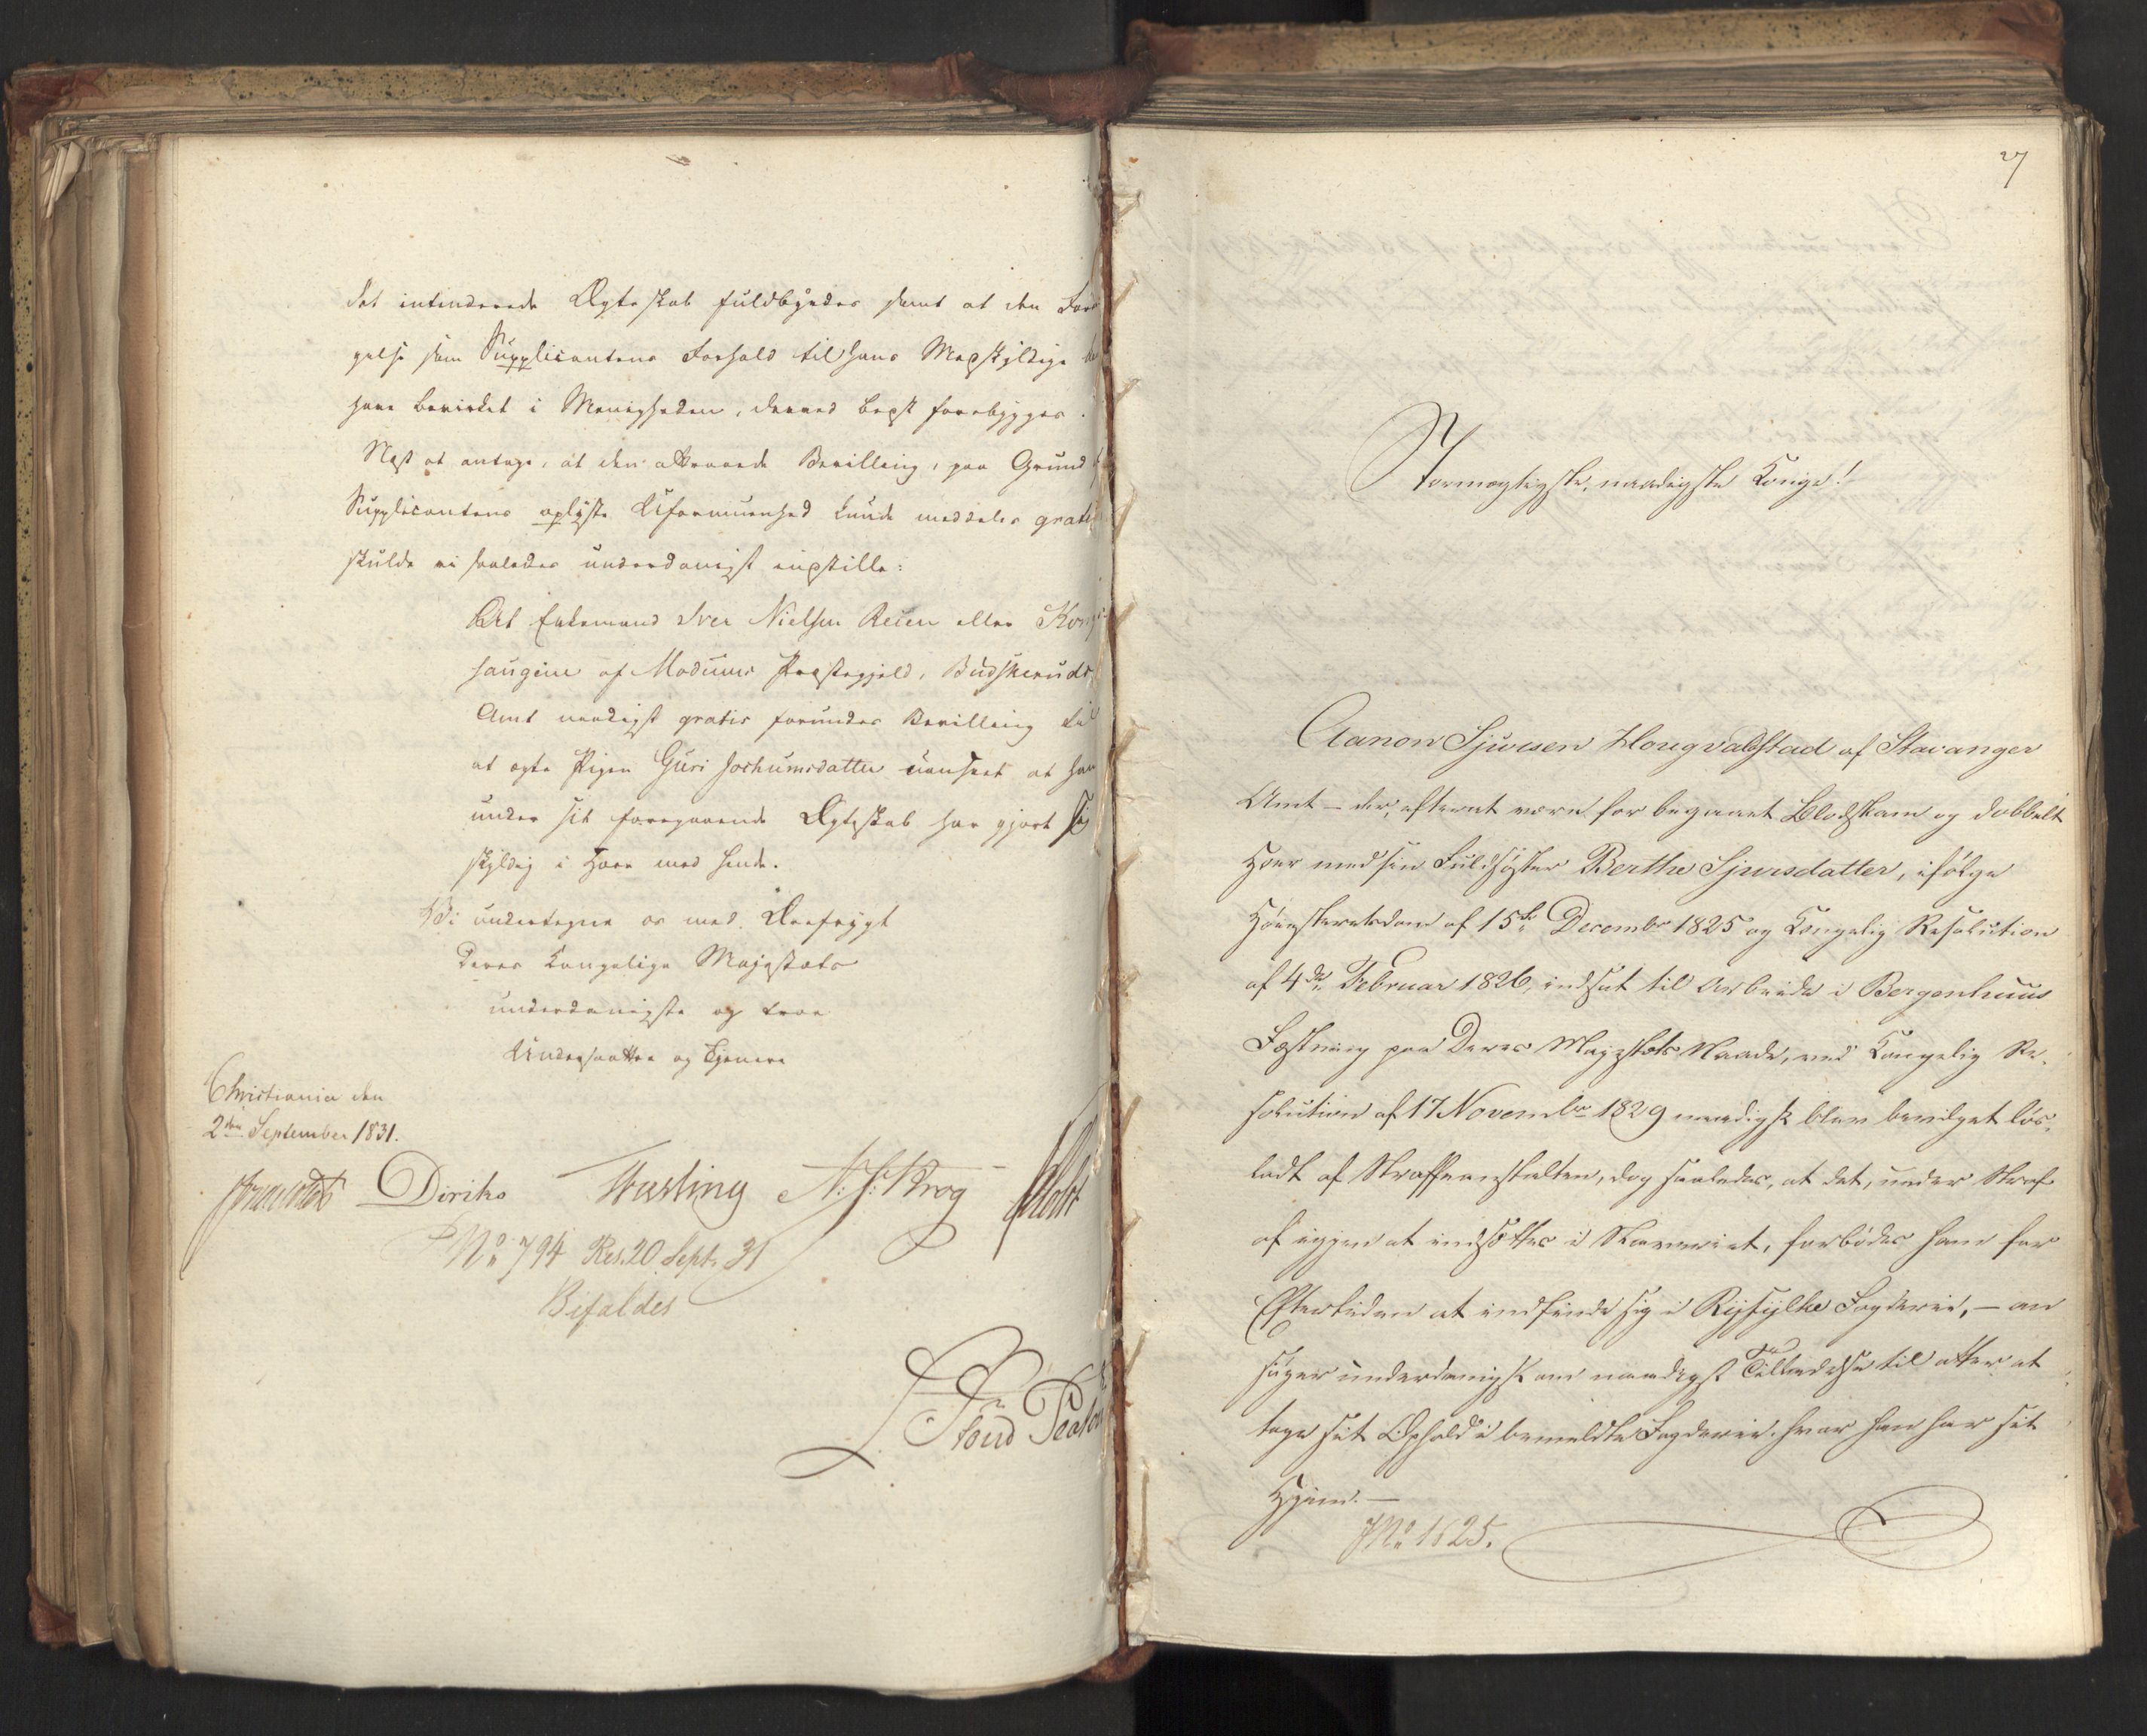 det intenderede Ægteskab fuldbyrdes samt at den For
gelse som Supplicantens Forhold til hans Medskyldige
have bevirket i Menigheden, derved bedst forebygges.
Med at antage, at den attraaede Bevilling, paa Grund
Supplicantens oplyste Uformuenhed kunde meddeles gratis
skulde vi saaledes underdanigst indstille:
At Enkemand Iver Nielsen Reien eller Kong
haugene af Modums Præstegjeld, Budskeruds
Amt naadigst gratis forundes Bevilling til
at ægte Pigen Guri Jorhumsdatter uanseet at han
under sit foregaaende Ægteskab har gjort sig
skyldig i Hoer med hende.
Vi undertegne os med Ærefrygt
Deres Kongelige Majestæts
underdanigste og troe
Undersaatter og Tjenere
Christiania den
2den September 1831.
Diriks N. J. Krog
No 794 Res. 20 Sept. 31
Bifaldes
27
Stormægtigste, naadigste Konge!
Aanon Sjursen Hougvaldstad af Stavanger
Amt – der, efterat være for begaaet Blodskam og dobbelt
Hoer med sin Fuldsøster Berthe Sjursdatter, ifølge
Høiesteretsdom af 15de Decembr 1825 og Kongelig Resolution
af 4de Februar 1826, indsat til Arbeide i Bergenhuus
Fæstning paa Deres Majestæts Naade, ved Kongelig Re-
solution af 17 Novembr 1829 naadigst blev bevilget løs-
ladt af Straffeanstalten, dog saaledes, at det, under Straf
af igjen at indsættes i Slaveriet, forbødes ham for
Eftertiden at indfinde sig i Ryfylke Fogderie, – an
søger underdanigst om naadigst Tilladelse til atter at
tage sit Ophold i bemeldte Fogderie, hvor han har sit
Hjem. –
JNo 1625.